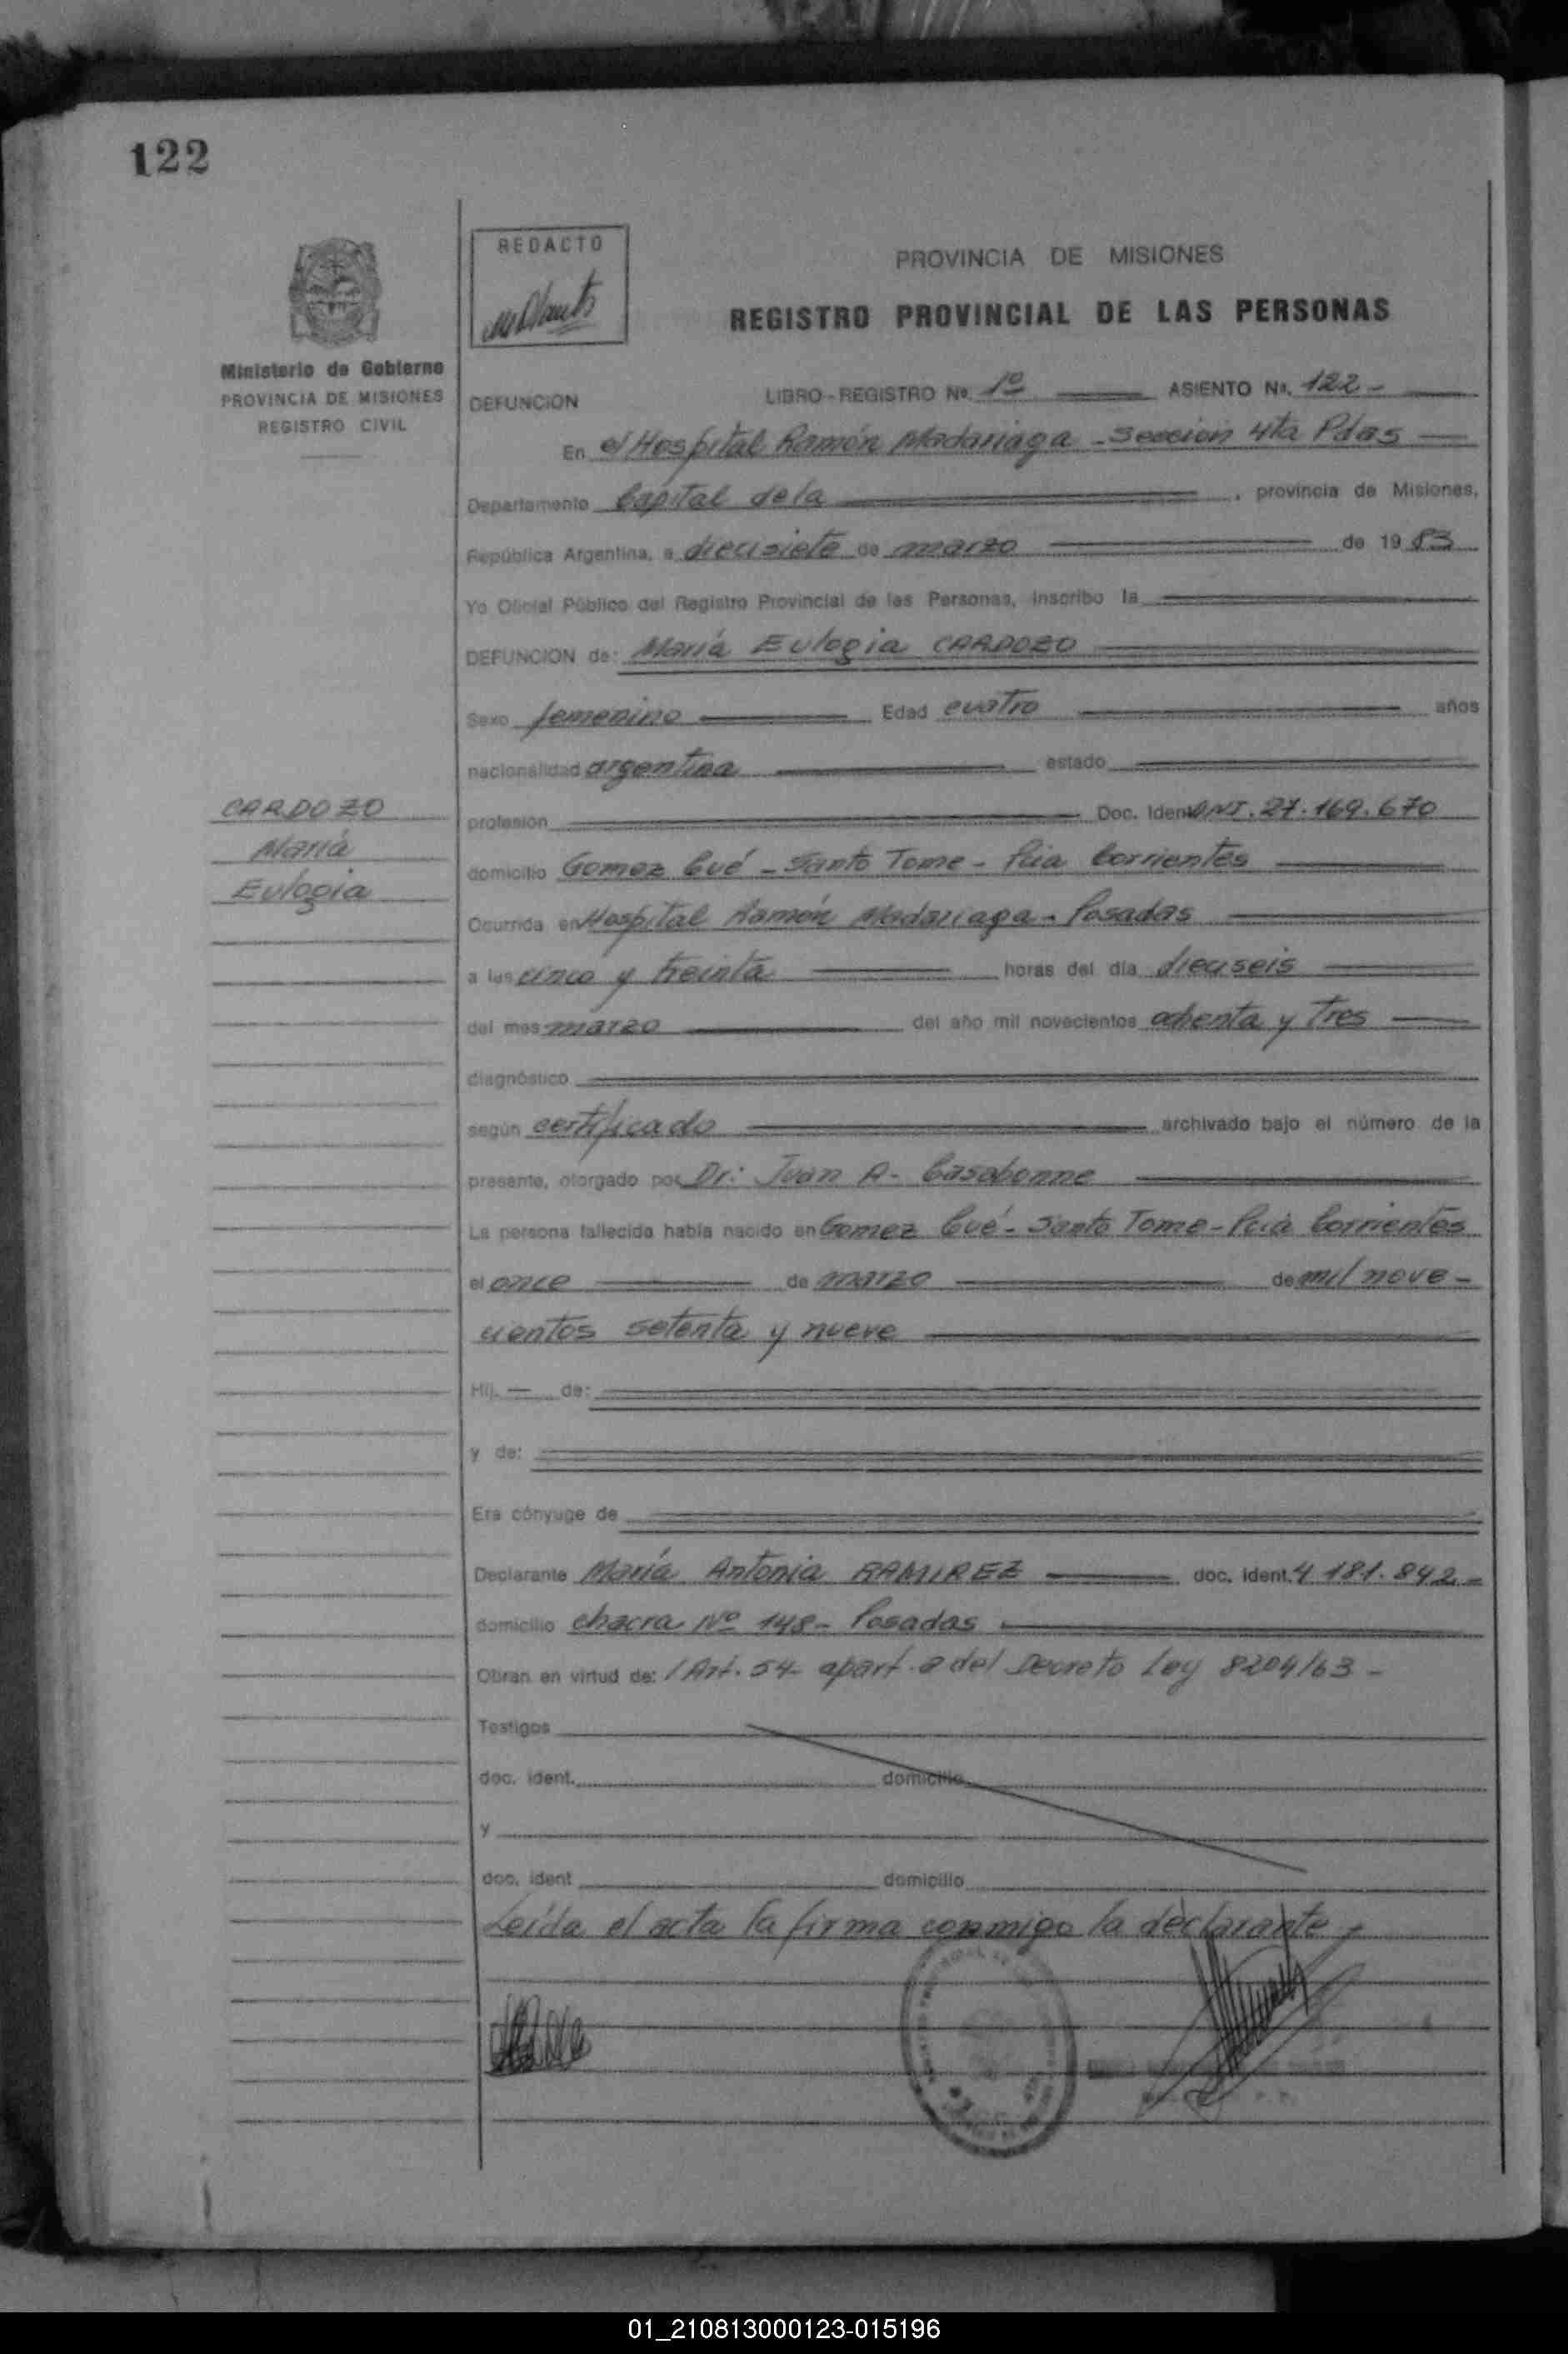 122
REDACTO
Ministerio de Gobierno
PROVINCIA DE MISIONES
REGISTRO CIVIL
PROVINCIA DE MISIONES
REGISTRO PROVINCIAL DE LAS PERSONAS
DEFUNCION LIBRO-REGISTRO No. 1º ASIENTO No. 122 -
En el Hospital Ramón Madariaga - Sección 4ta Pdas
Departamento Capital de la , provincia de Misiones,
República Argentina, a diecisiete de marzo de 1983
Yo Oficial Público del Registro Provincial de las Personas, inscribo la
DEFUNCION de: María Eulogia CARDOZO
Sexo femenino Edad cuatro años
nacionalidad argentina estado
CARDOZO
María
Eulogia
profesión Doc. Ident DNI. 27.169.670
domicilio Gomez Cué - Santo Tome - Pcia Corrientes
Ocurrida en Hospital Ramón Madariaga - Posadas
a las cinco y treinta horas del día dieciseis
del mes marzo del año mil novecientos ochenta y tres
diagnóstico
según certificado archivado bajo el número de la
presente, otorgado por Dr: Juan A. Casabonne
La persona fallecida había nacido en Gomez Cué - Santo Tome - Pcia Corrientes
el once de marzo de mil nove-
cientos setenta y nueve
Hij. — de:
y de:
Era cónyuge de
Declarante María Antonia RAMIREZ doc. ident. 4.181.842 -
domicilio chacra Nº 148 - Posadas
Obran en virtud de: / Art. 54 - apart. a del Decreto Ley 8204/63 -
Testigos
doc. ident. domicilio
y
doc. ident domicilio
Leída el acta la firma conmigo la declarante -
01_210813000123-015196